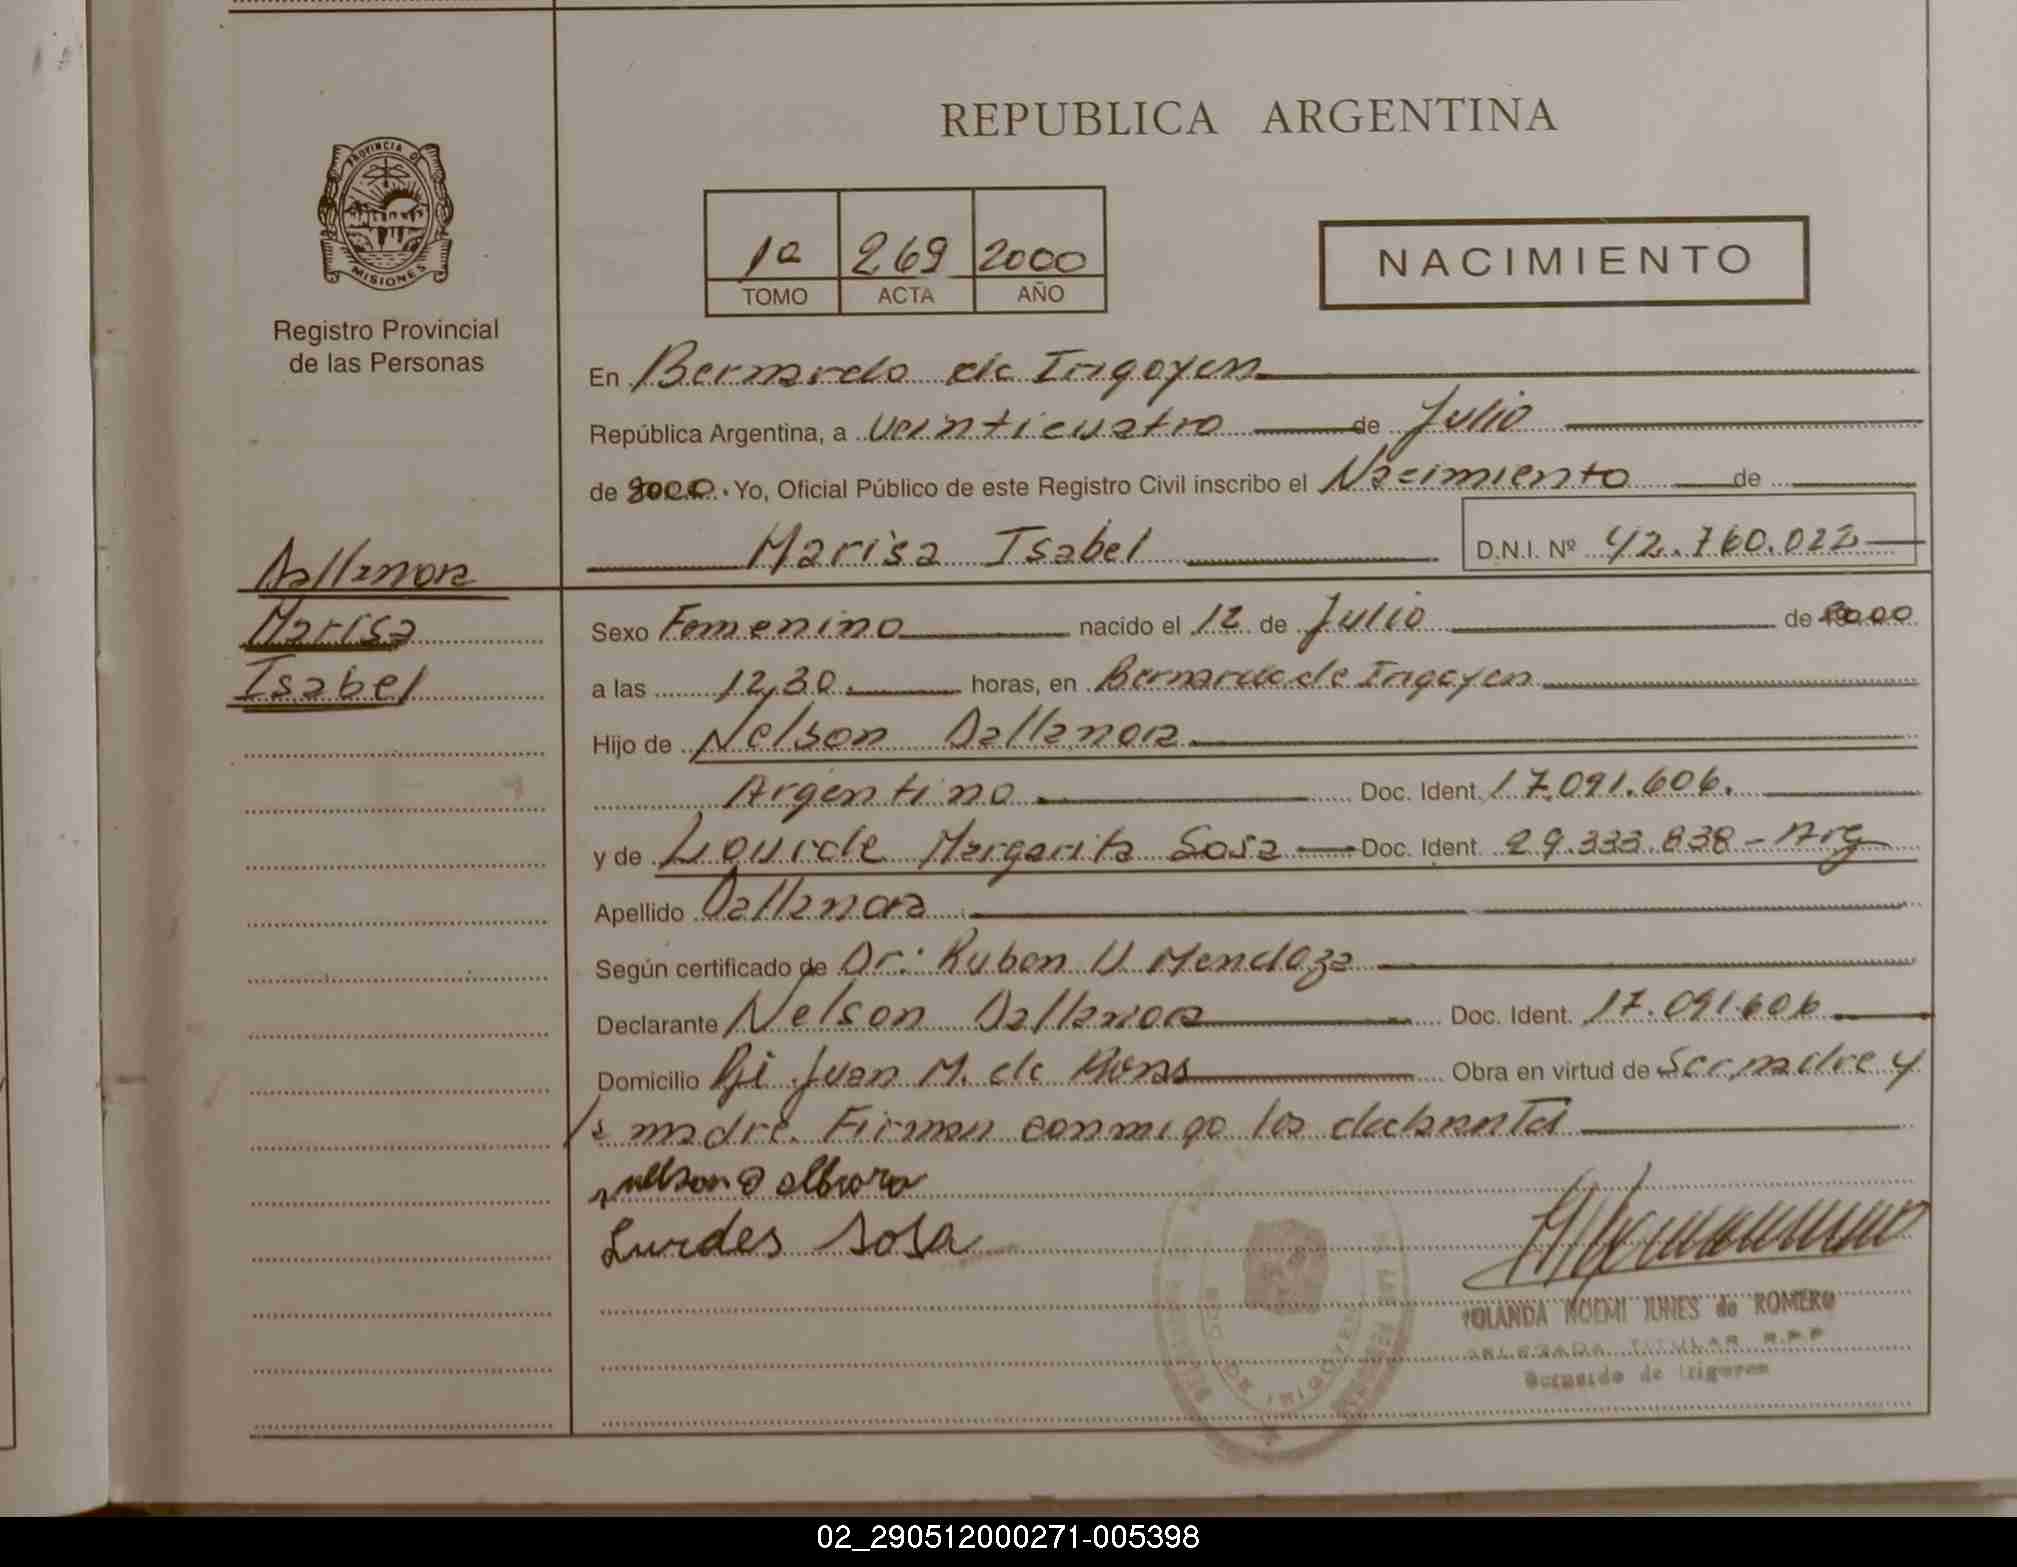 PROVINCIA DE
MISIONES
Registro Provincial
de las Personas
REPUBLICA ARGENTINA
1º 269 2000
TOMO ACTA AÑO
NACIMIENTO
En Bernardo de Irigoyen
República Argentina, a veinticuatro de Julio
de 2000. Yo, Oficial Público de este Registro Civil inscribo el Nacimiento de
Marisa Isabel D.N.I. Nº 42.760.022
Dallanora
Marisa
Isabel
Sexo Femenino nacido el 12 de Julio de 2000
a las 12,30. horas, en Bernardo de Irigoyen
Hijo de Nelson Dallanora
Argentino Doc. Ident. 17.091.606.
y de Lourde Margarita Sosa Doc. Ident. 29.333.838 - Arg
Apellido Dallanora
Según certificado de Dr: Ruben U. Mendoza
Declarante Nelson Dallanora Doc. Ident. 17.091.606
Domicilio Juan M. de Obra en virtud de Ser, madre y
la madre. Firman conmigo los
Lurdes Sosa
YOLANDA NOEMI JUNES de ROMERO
DELEGADA TITULAR R.P.P
Bernardo de Irigoyen
02_290512000271-005398